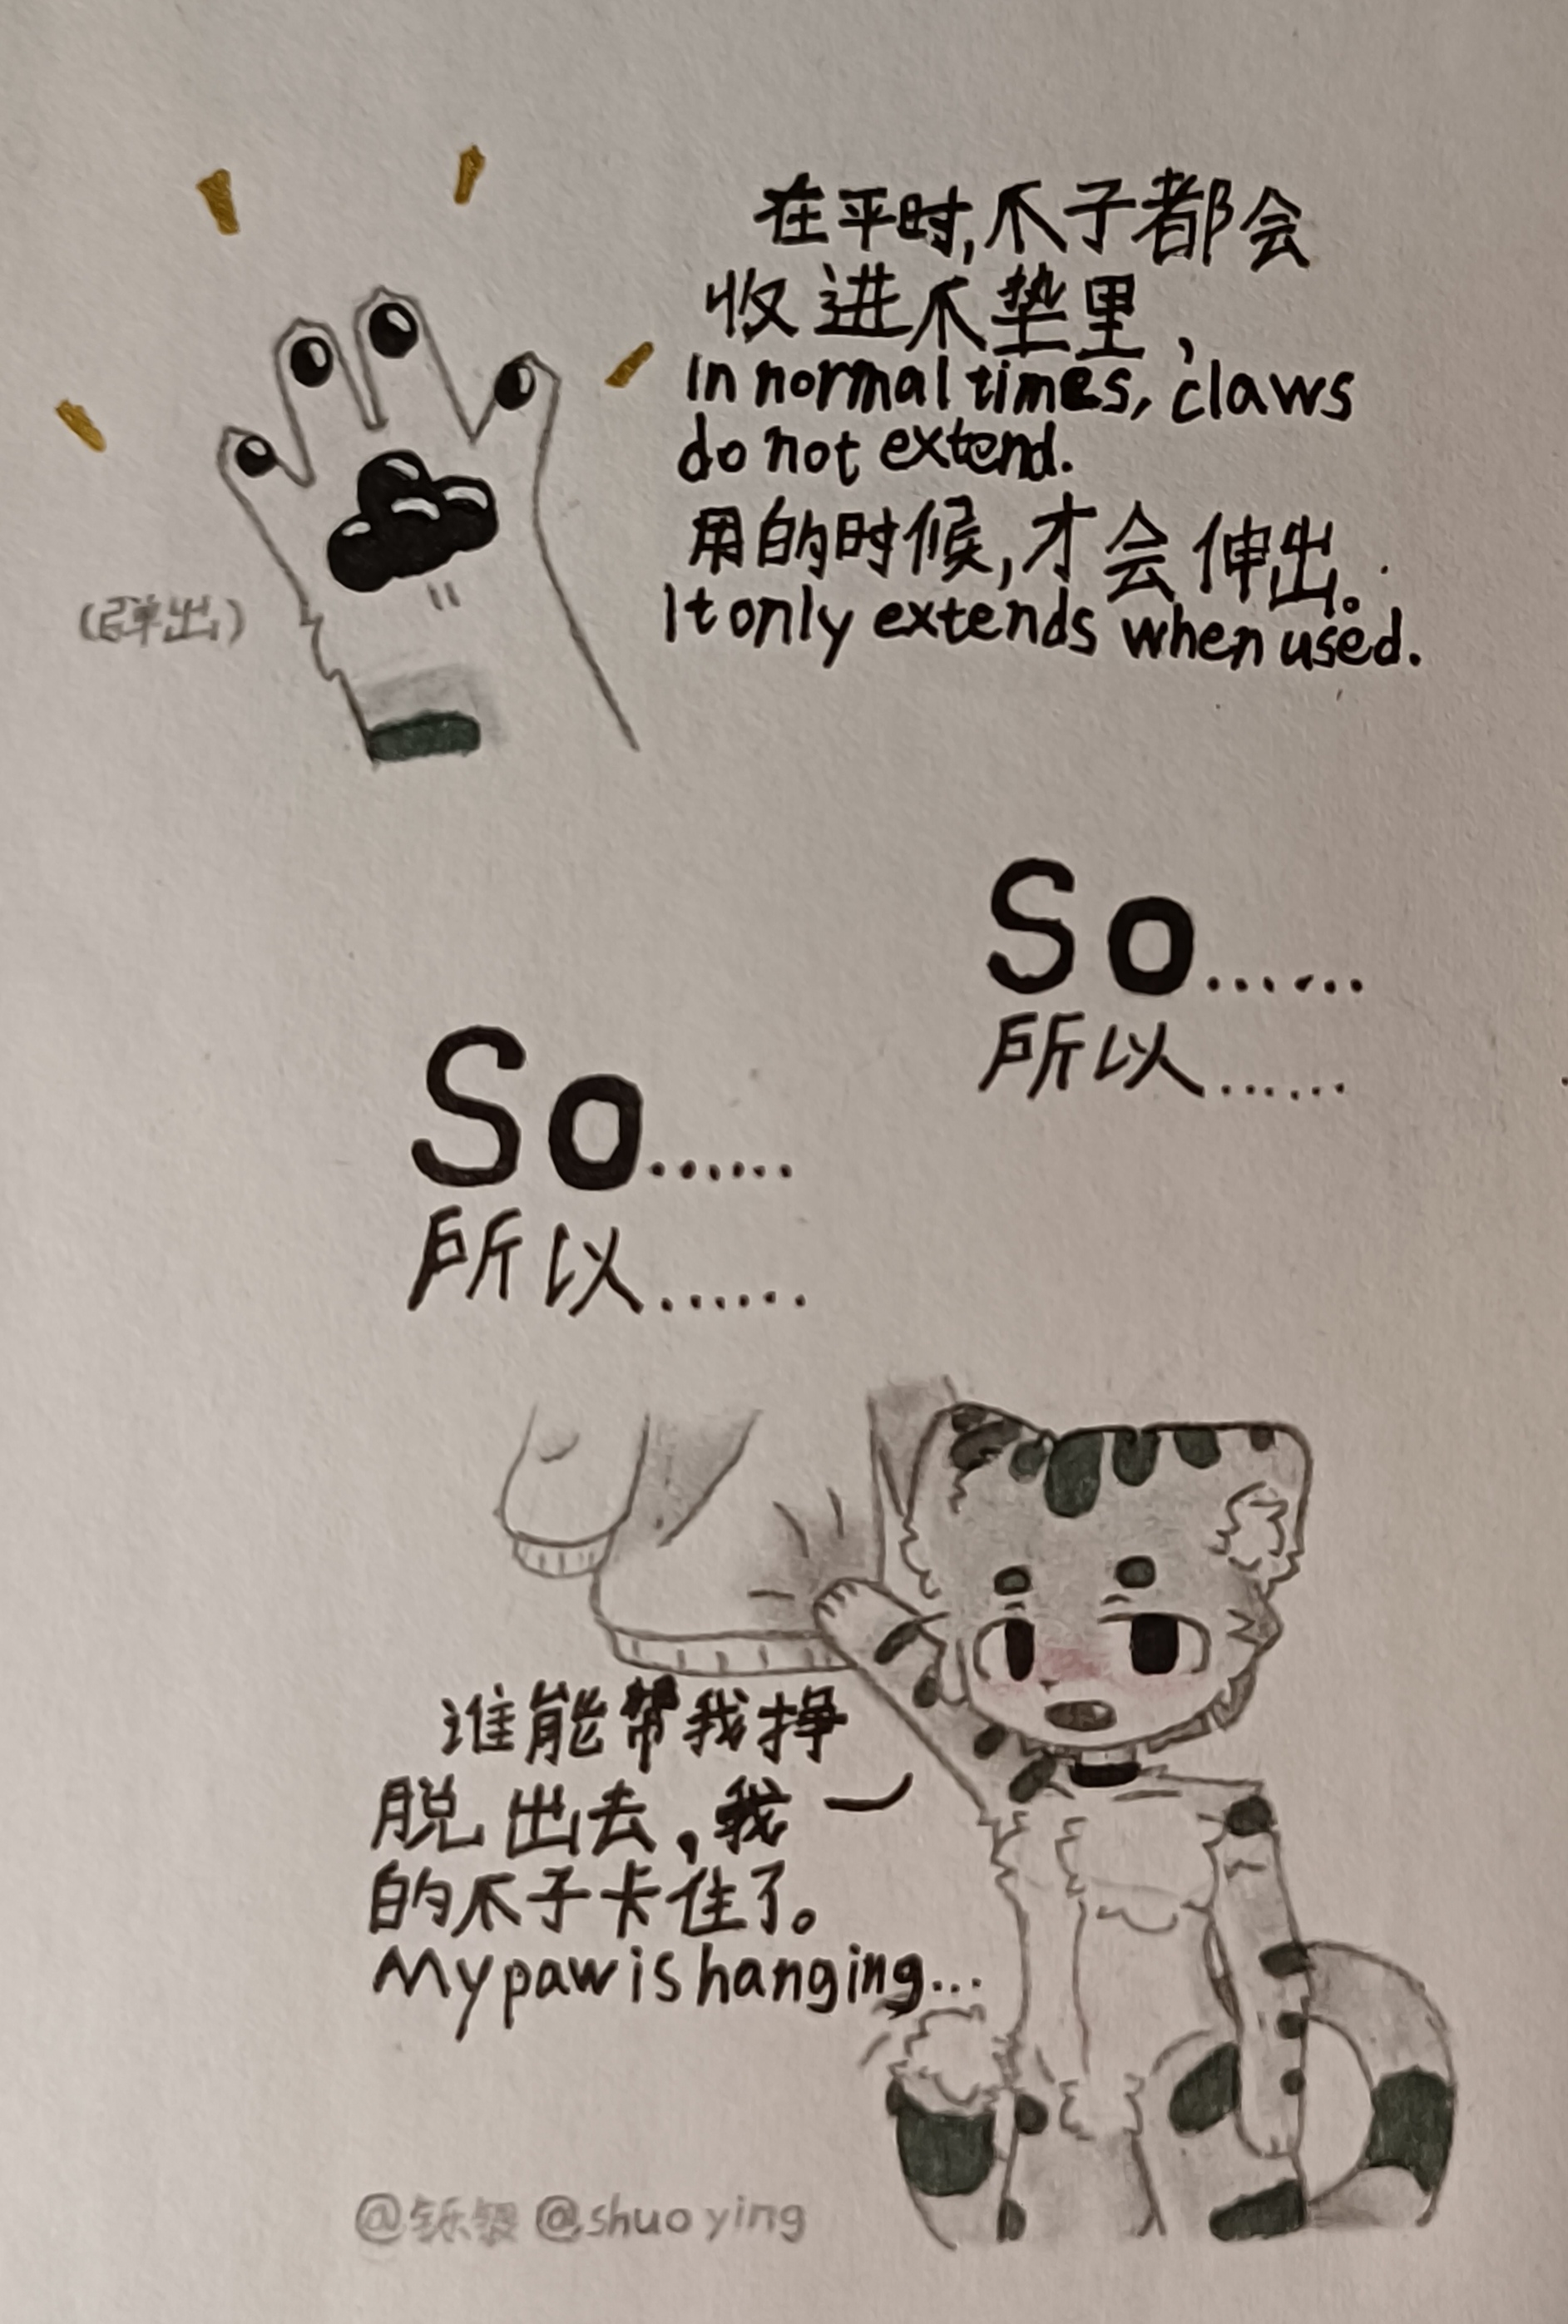 在平时,爪子都会
收进爪垫里,
In normal times, claws
do not extend.
用的时候,才会伸出。
It only extends when used.
(弹出)
So......
所以......
So......
所以......
谁能帮我挣
脱出去,我一
的爪子卡住了。
My paw is hanging...
@shuo ying